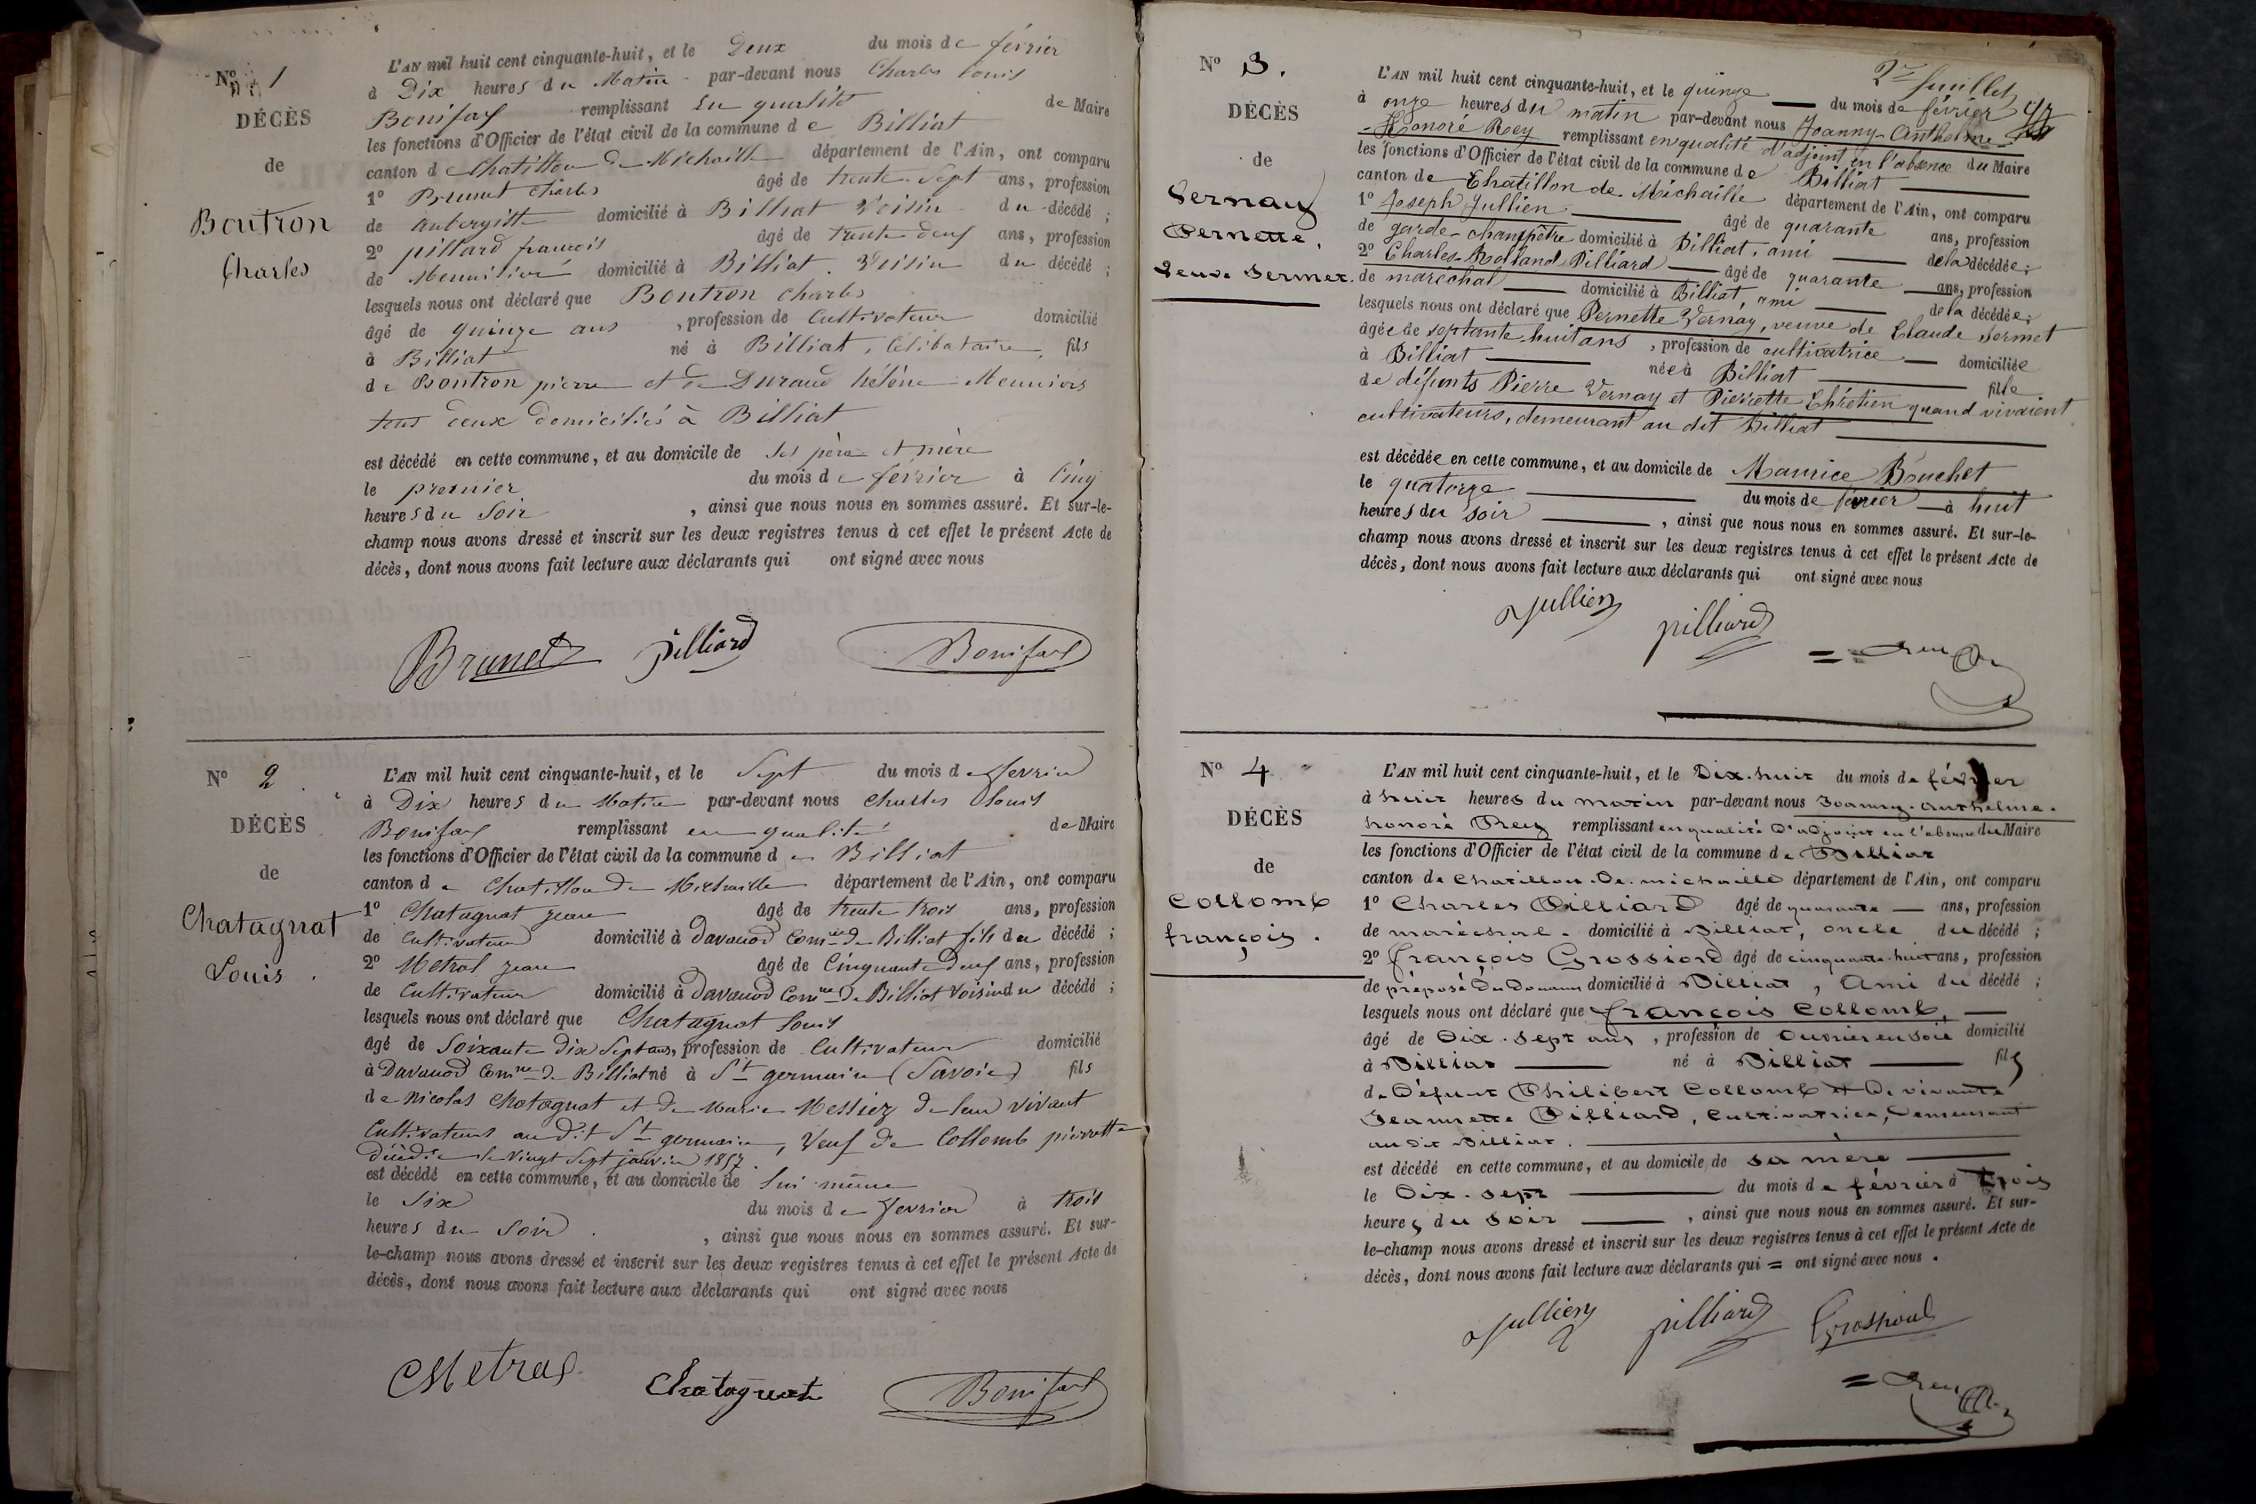 Nº 1
DÉCÈS
de
Boutron
Charles
L'AN mil huit cent cinquante-huit, et le Deux du mois de février
à Dix heures du Matin par-devant nous Charles Louis
Bonifax remplissant en qualité de Maire
les fonctions d'Officier de l'état civil de la commune de Billiat
canton de Chatillon de Michaille département de l'Ain, ont comparu
1º Brunet Charles âgé de trente-sept ans, profession
de aubergiste domicilié à Billiat Voisin du décédé ;
2º pilliard françois âgé de trente deux ans, profession
de Menuisier domicilié à Billiat. Voisin du décédé ;
lesquels nous ont déclaré que Boutron Charles
âgé de quinze ans, profession de Cultivateur domicilié
à Billiat né à Billiat, Célibataire, fils
de Boutron pierre et de Durand hélène Meuniers
tous deux domiciliés à Billiat
est décédé en cette commune, et au domicile de ses père et mère
le premier du mois de février à Cinq
heures du Soir, ainsi que nous nous en sommes assuré. Et sur-le-
champ nous avons dressé et inscrit sur les deux registres tenus à cet effet le présent Acte de
décès, dont nous avons fait lecture aux déclarants qui ont signé avec nous
Brunet pilliard Bonifax
Nº 2
DÉCÈS
de
Chatagnat
Louis.
L'AN mil huit cent cinquante-huit, et le Sept du mois de fevrier
à Dix heures du Matin par-devant nous Charles Louis
Bonifax remplissant en qualité de Maire
les fonctions d'Officier de l'état civil de la commune de Billiat
canton de Chatillon de Michaille département de l'Ain, ont comparu
1º Chatagnat jean âgé de trente trois ans, profession
de Cultivateur domicilié à Davanod Comne de Billiat fils du décédé ;
2º Metral jean âgé de Cinquante deux ans, profession
de Cultivateur domicilié à Davanod Comne de Billiat Voisin du décédé ;
lesquels nous ont déclaré que Chatagnat Louis
âgé de Soixante Dix Sept ans, profession de Cultivateur domicilié
à Davanod Comne de Billiat né à St germain (Savoie) fils
de Nicolas Chatagnat et de Marie Messiez de leur vivant
Cultivateurs au dit St germain, Veuf de Collomb pierrette
Décédée le Vingt Sept janvier 1857.
est décédé en cette commune, et au domicile de lui même
le Six du mois de fevrier à trois
heures du Soir, ainsi que nous nous en sommes assuré. Et sur-
le-champ nous avons dressé et inscrit sur les deux registres tenus à cet effet le présent Acte de
décès, dont nous avons fait lecture aux déclarants qui ont signé avec nous
Metral Chatagnat Bonifax
2e feuillet
Nº 3.
DÉCÈS
de
Vernay
Pernette,
Veuve Sermet.
L'AN mil huit cent cinquante-huit, et le quinze du mois de février
à onze heures du matin par-devant nous Joanny-Anthelme-
Honoré Rey remplissant en qualité d'adjoint en l'absence du Maire
les fonctions d'Officier de l'état civil de la commune de Billiat
canton de Chatillon-de-Michaille département de l'Ain, ont comparu
1º Joseph Jullien âgé de quarante ans, profession
de garde-champêtre domicilié à Billiat, ami de la décédée ;
2º Charles-Rolland Pilliard âgé de quarante ans, profession
de maréchal domicilié à Billiat, ami de la décédée ;
lesquels nous ont déclaré que Pernette Vernay, veuve de Claude Sermet
âgée de septante-huit ans, profession de cultivatrice domiciliée
à Billiat née à Billiat fille
de défunts Pierre Vernay et Pierrette Chrétien quand vivaient
cultivateurs, demeurant au dit Billiat
est décédée en cette commune, et au domicile de Maurice Bouchet
le quatorze du mois de février à huit
heures du soir, ainsi que nous nous en sommes assuré. Et sur-le-
champ nous avons dressé et inscrit sur les deux registres tenus à cet effet le présent Acte de
décès, dont nous avons fait lecture aux déclarants qui ont signé avec nous
Jullien pilliard Rey
Nº 4
DÉCÈS
de
Collomb
françois.
L'AN mil huit cent cinquante-huit, et le Dix-huit du mois de février
à huit heures du matin par-devant nous Joanny-Anthelme-
honoré Rey remplissant en qualité d'adjoint en l'absence du Maire
les fonctions d'Officier de l'état civil de la commune de Billiat
canton de Chatillon-De-michaille département de l'Ain, ont comparu
1º Charles Pilliard âgé de quarante ans, profession
de maréchal domicilié à Billiat, oncle du décédé ;
2º françois Grossiord âgé de cinquante-huit ans, profession
de préposé du Douanes domicilié à Billiat, Ami du décédé ;
lesquels nous ont déclaré que françois Collomb,
âgé de Dix-sept ans, profession de Ouvrier en soie domicilié
à Billiat né à Billiat fils
de Défunt Philibert Collomb et De vivante
Jeannette Pilliard, Cultivatrice, Demeurant
au dit Billiat.
est décédé en cette commune, et au domicile de sa mère
le Dix-sept du mois de février à trois
heures du soir, ainsi que nous nous en sommes assuré. Et sur-
le-champ nous avons dressé et inscrit sur les deux registres tenus à cet effet le présent Acte de
décès, dont nous avons fait lecture aux déclarants qui = ont signé avec nous.
Jullien pilliard Grossiord
Rey